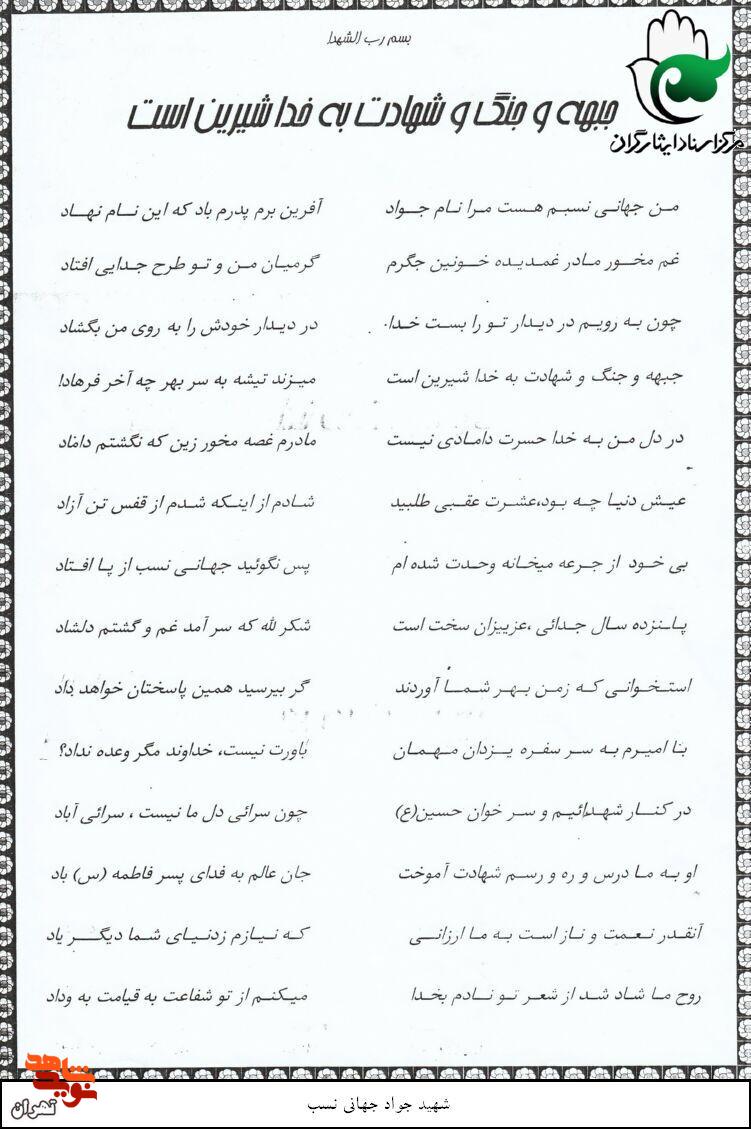 بسم رب الشهدا
مرکز اسناد ایثارگران
جبهه و جنگ و شهادت به خدا شیرین است
من جهانی نسبم هست مرا نام جواد آفرین برم پدرم باد که این نام نهاد
غم مخور مادر غمدیده خونین جگرم گرمیان من و تو طرح جدایی افتاد
چون به رویم در دیدار تو را بست خدا در دیدار خودش را به روی من بگشاد
جبهه و جنگ و شهادت به خدا شیرین است میزند تیشه به سر بهر چه آخر فرهاد!
در دل من به خدا حسرت دامادی نیست مادرم غصه مخور زین که نگشتم داماد
عیش دنیا چه بود،عشرت عقبی طلبید شادم از اینکه شدم از قفس تن آزاد
بی خود از جرعه میخانه وحدت شده ام پس نگوئید جهانی نسب از پا افتاد
پانزده سال جدائی ،عزییزان سخت است شکر لله که سر آمد غم و گشتم دلشاد
استخوانی که زمن بهر شما آوردند گر بپرسید همین پاسختان خواهد داد
بنا امیرم به سر سفره یزدان مهمان باورت نیست، خداوند مگر وعده نداد؟
در کنار شهدائیم و سر خوان حسین(ع) چون سرائی دل ما نیست ، سرائی آباد
او به ما درس و ره و رسم شهادت آموخت جان عالم به فدای پسر فاطمه (س) باد
آنقدر نعمت و ناز است به ما ارزانی که نیازم زدنیای شما دیگر یاد
روح ما شاد شد از شعر تو نادم بخدا میکنم از تو شفاعت به قیامت به وداد
نوید شاهد
تهران
شهید جواد جهانی نسب